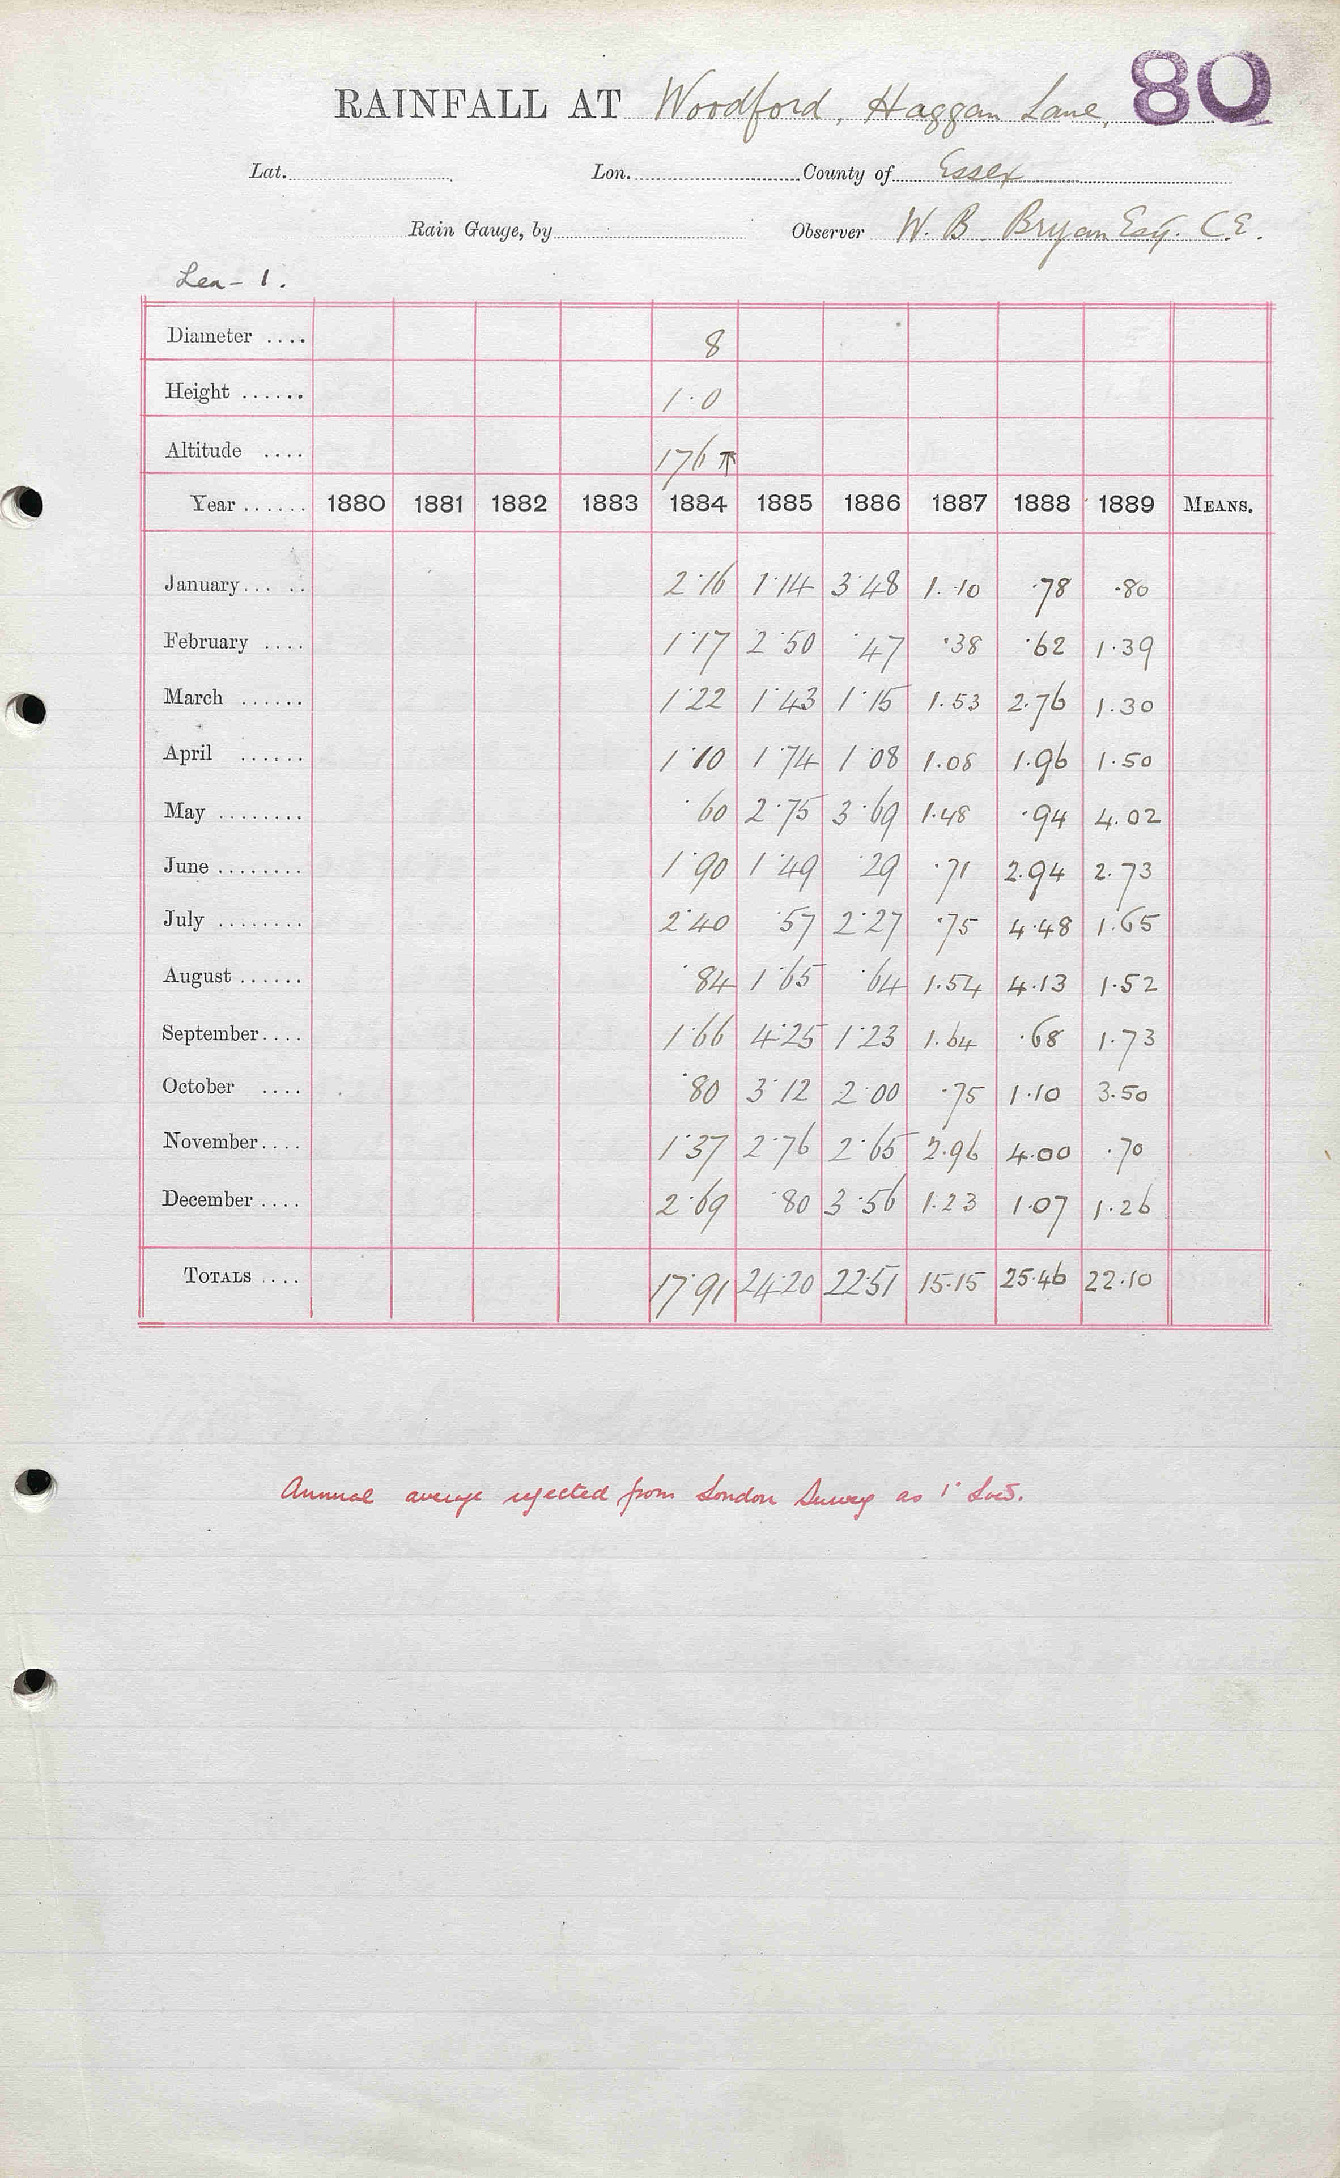 RAINFALL AT Woodford, Haggan Lane, 80
Lat. Lon. County of Essex
Rain Gauge, by Observer W. B. Bryan Esq. C.E.
Lea - 1.
Diameter .... 8
Height ...... 1.0
Altitude .... 176 ↑
Year ...... 1880 1881 1882 1883 1884 1885 1886 1887 1888 1889 MEANS.
January... .. 2.16 1.14 3.48 1.10 .78 .80
February .... 1.17 2.50 .47 .38 .62 1.39
March ...... 1.22 1.43 1.15 1.53 2.76 1.30
April ...... 1.10 1.74 1.08 1.08 1.96 1.50
May ........ .60 2.75 3.69 1.48 .94 4.02
June ........ 1.90 1.49 .29 .71 2.94 2.73
July ........ 2.40 .57 2.27 .75 4.48 1.65
August ...... .84 1.65 .64 1.54 4.13 1.52
September.... 1.66 4.25 1.23 1.64 .68 1.73
October .... .80 3.12 2.00 .75 1.10 3.50
November.... 1.37 2.76 2.65 2.96 4.00 .70
December .... 2.69 .80 3.56 1.23 1.07 1.26
TOTALS .... 17.91 24.20 22.51 15.15 25.46 22.10
Annual average rejected from London Survey as 1" Low.